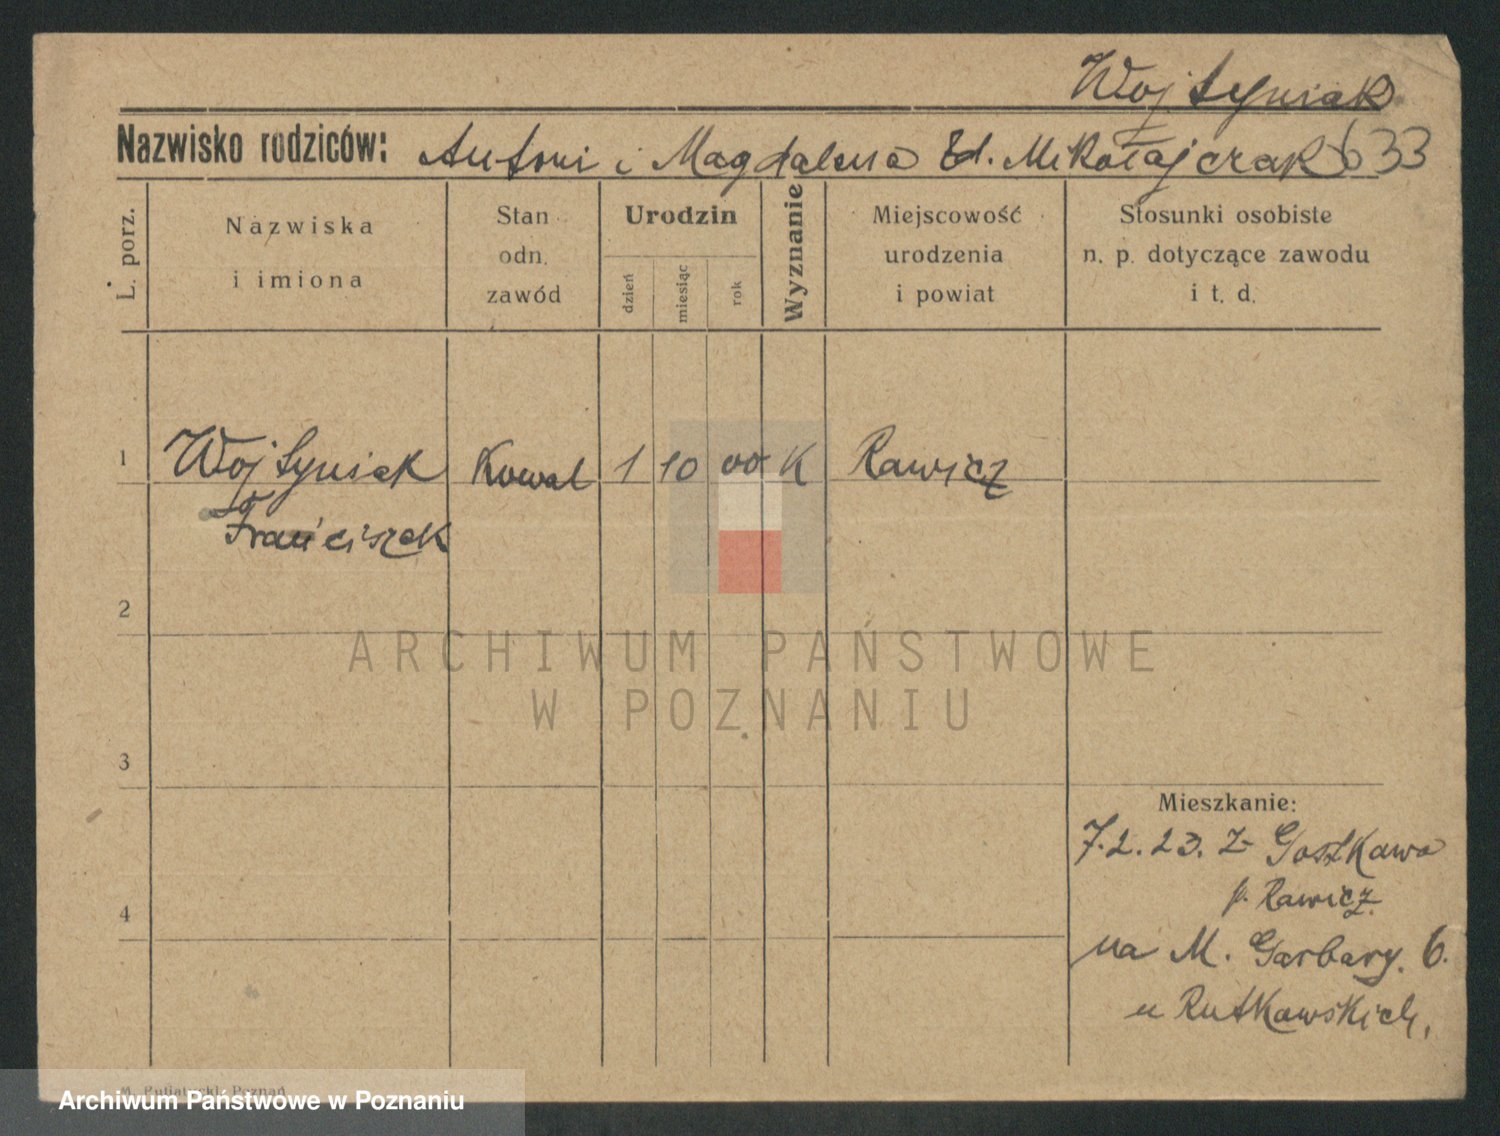 Wojtyniak
Nazwisko rodziców: Antoni i Magdalena zd. Mikołajczak 633
L. porz.
Nazwiska
i imiona
Stan
odn.
zawód
Urodzin
dzień
miesiąc
rok
Wyznanie
Miejscowość
urodzenia
i powiat
Stosunki osobiste
n. p. dotyczące zawodu
i t. d.
1 Wojtyniak Kowal 1 10 00 K Rawicz
Franciszek
2
ARCHIWUM PAŃSTWOWE
W POZNANIU
3
Mieszkanie:
7.2.23. z Goszkawa
p. Rawicz.
4
na M. Garbary. 6.
u Rutkawskich.
Poznań
Archiwum Państwowe w Poznaniu